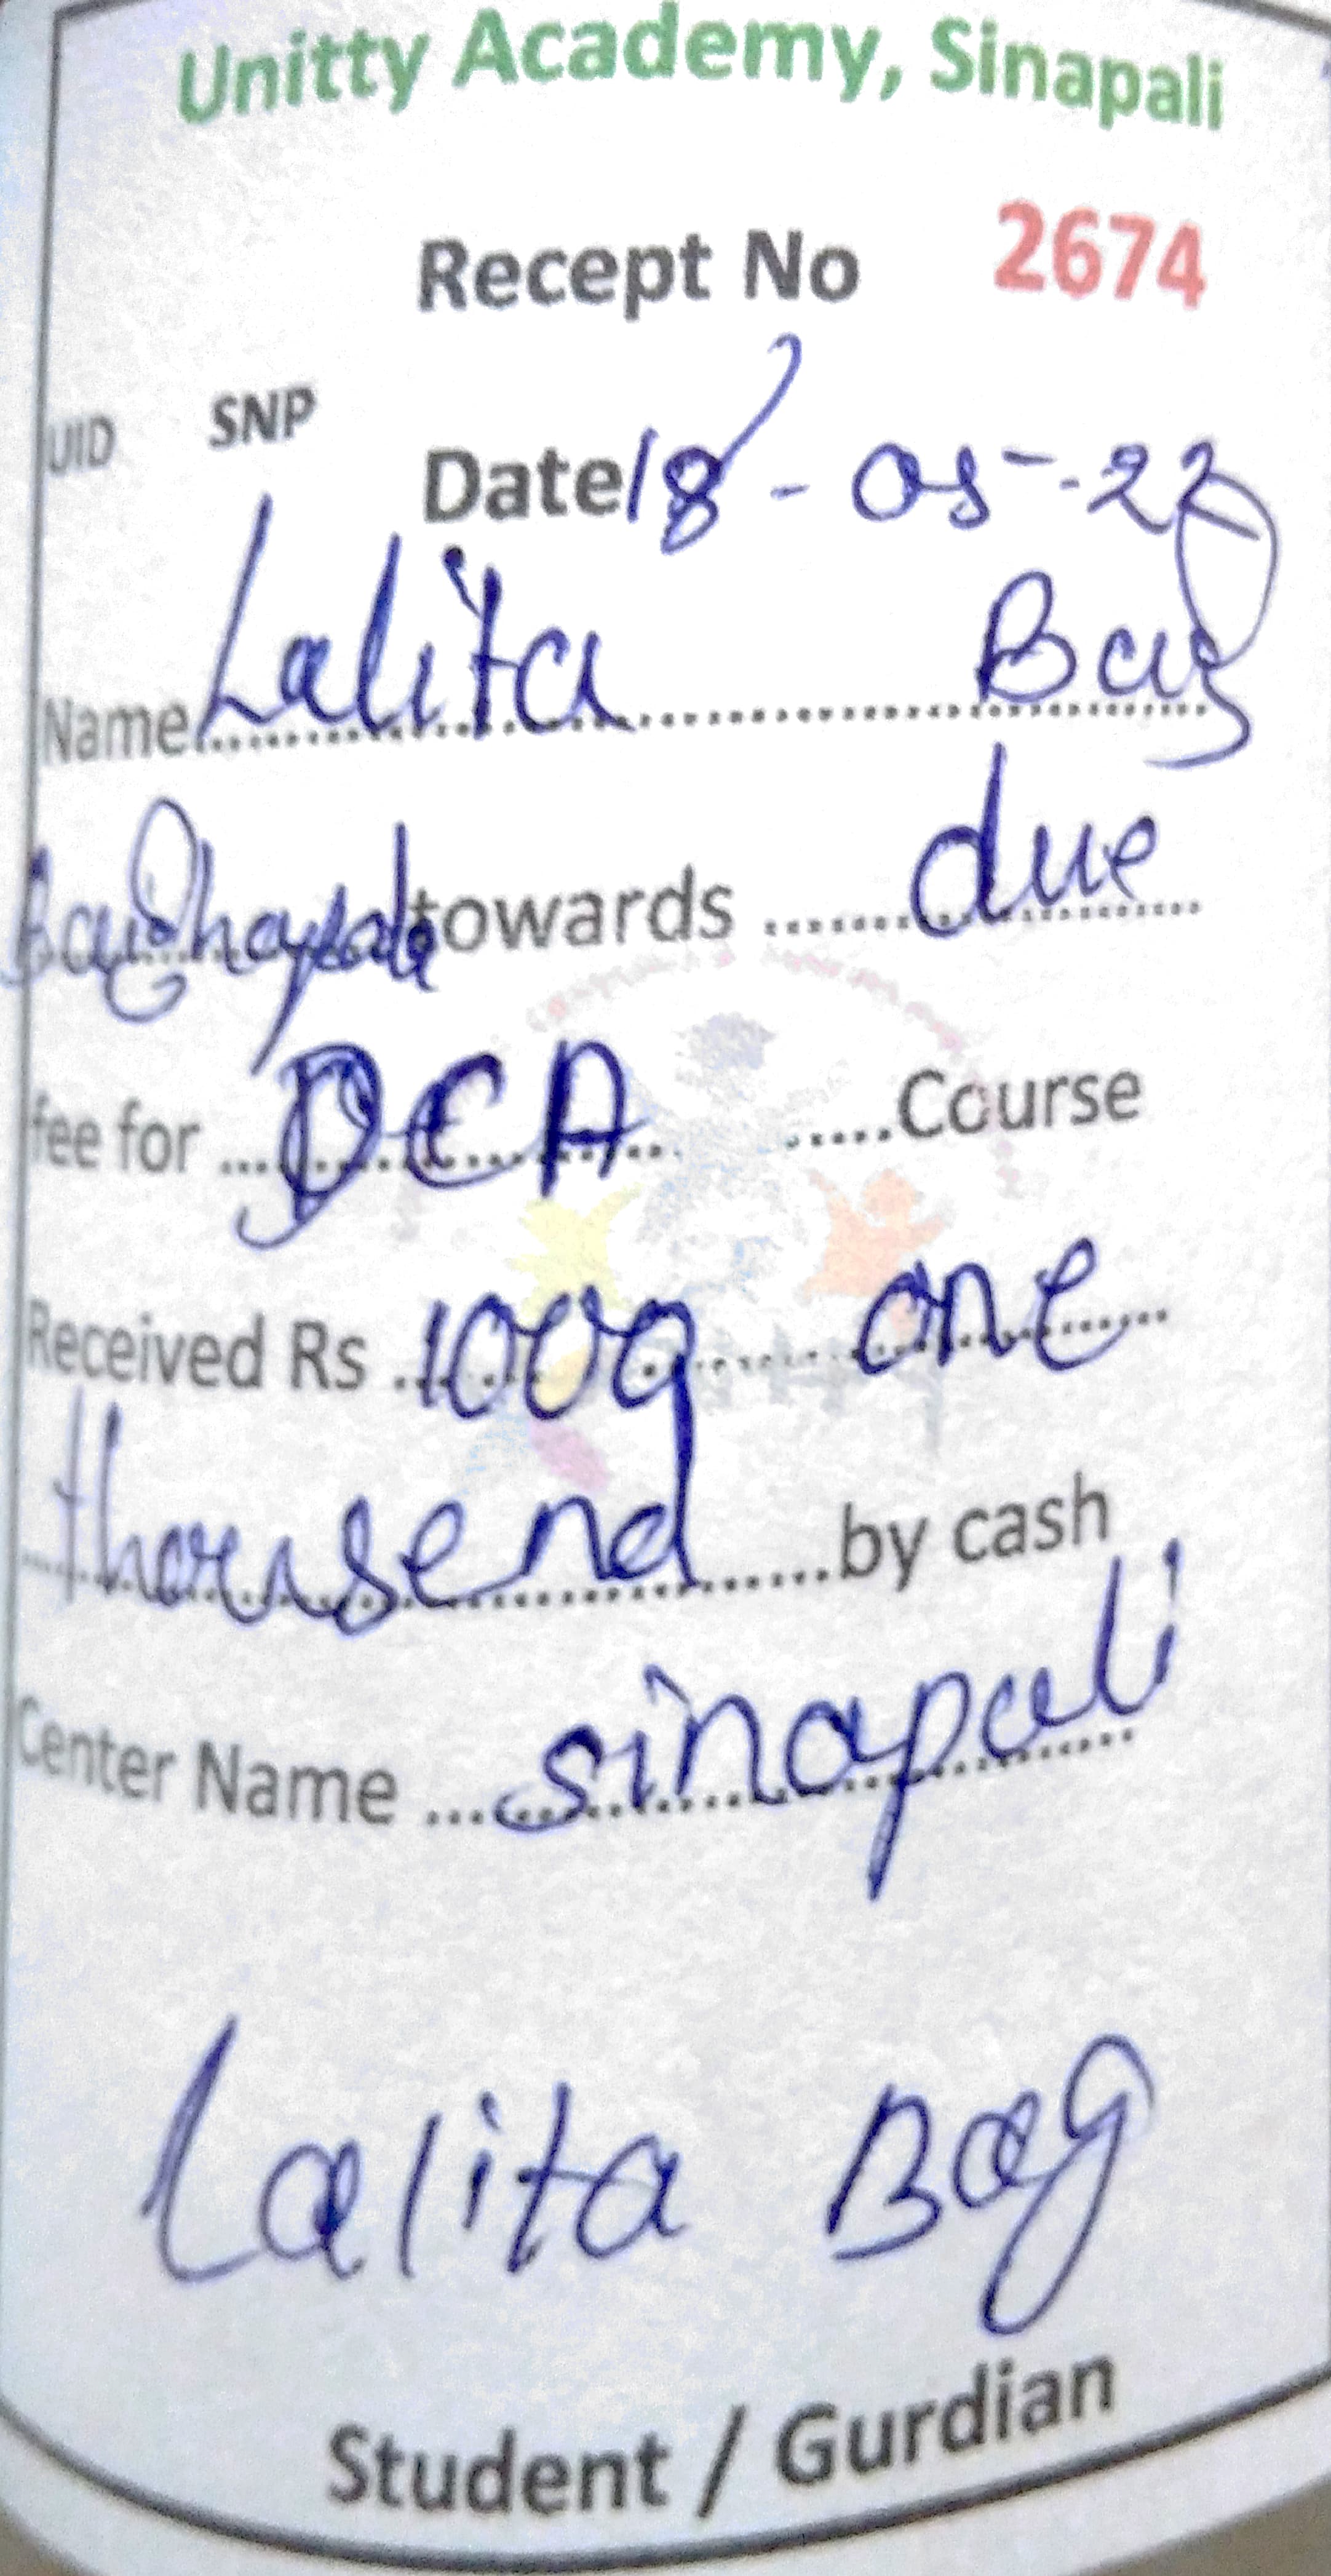 Unitty Academy, Sinapali
Recept No 2674
UID SNP
Date 18-05-22
Name Lalita Bag
towards due
fee for DCA Course
Received Rs 1000 one
thousend by cash
Center Name sinapali
Lalita Bag
Student / Gurdian